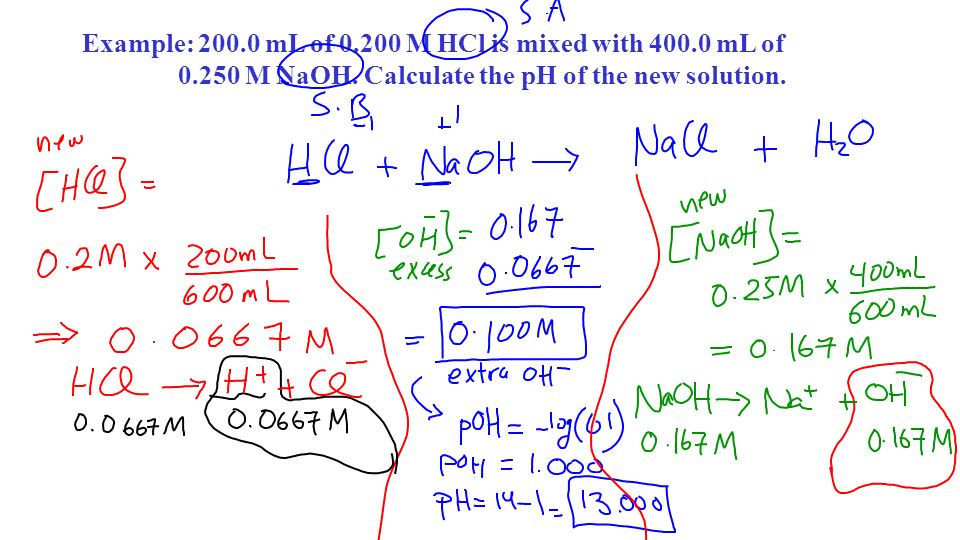 S A
Example: 200.0 mL of 0.200 M HCl is mixed with 400.0 mL of
0.250 M NaOH. Calculate the pH of the new solution.
S. B
-1 +1
HCl + NaOH → NaCl + H₂O
new
[HCl] =
0.2M x 200mL
600 mL
⇒ 0.0667 M
HCl → H⁺ + Cl⁻
0.0667M 0.0667 M
[OH⁻] = 0.167
excess - 0.0667
= 0.100M
extra OH⁻
pOH = -log(0.1)
pOH = 1.000
pH = 14-1 = 13.000
new
[NaOH] =
0.25M x 400mL
600mL
= 0.167M
NaOH → Na⁺ + OH⁻
0.167M 0.167M